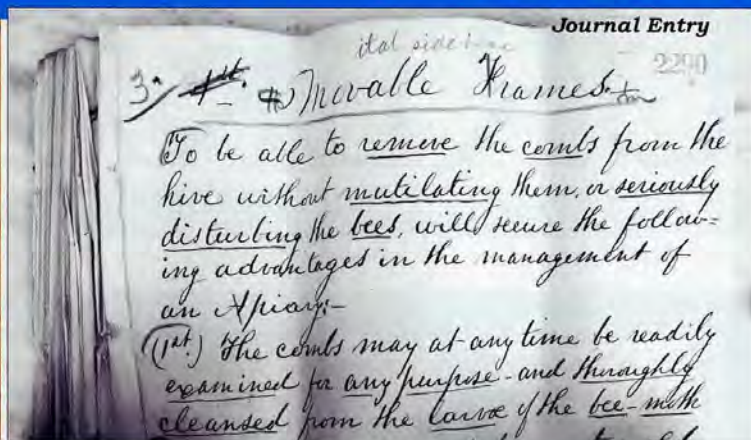 Journal Entry
ital side
2290
3. 1st. Movable Frames.
To be able to remove the combs from the
hive without mutilating them, or seriously
disturbing the bees, will secure the follow=
ing advantages in the management of
an Apiary:-
(1st.) The combs may at any time be readily
examined for any purpose - and thoroughly
cleansed from the larvæ of the bee-moth